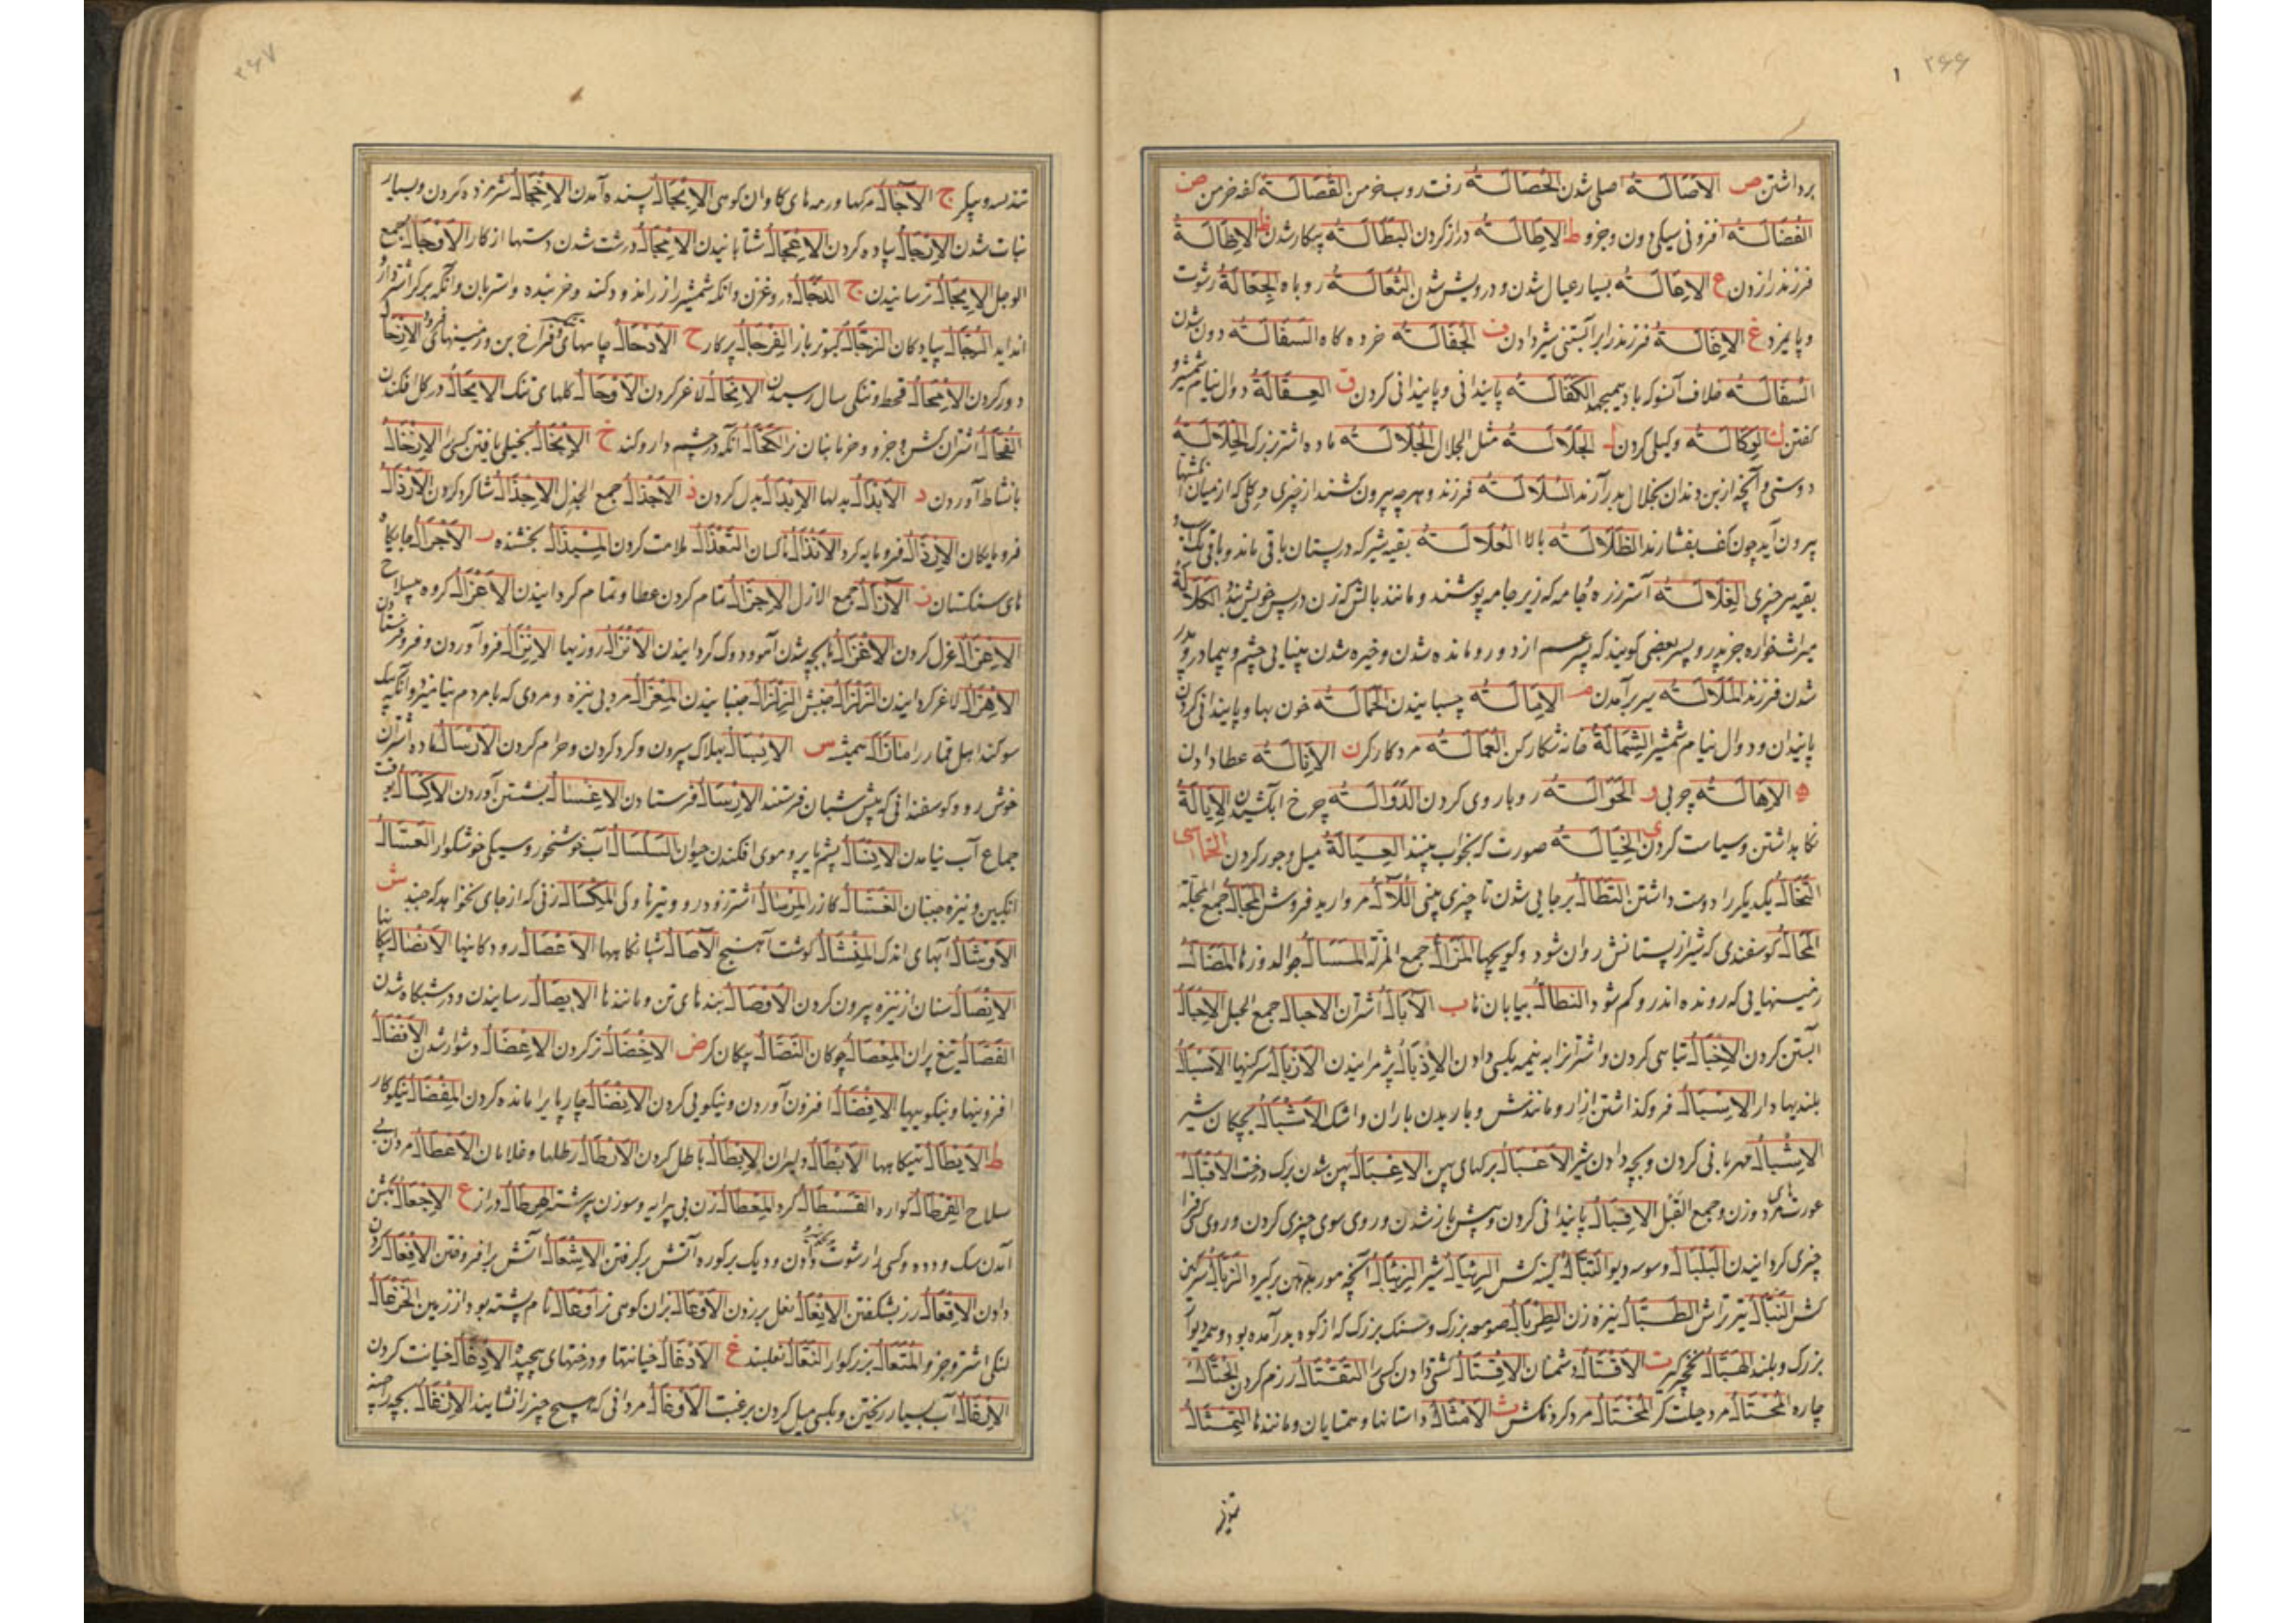 ۲۶۶
برداشتن ص الاصالة اصلی شدن الحصالة رفت روب خرمن القصالة کفه خرمن ض
الفضالة افزونی سیکی دون وجزو ط الاطالة دراز کردن البطالة بیکار شدن ظ الاظالة
فرزند را زدن ع الاعالة بسیار عیال شدن و درویش شدن الثعالة روباه الجعالة رشوت
و پایمزد غ الاغالة فرزند را بر آبستنی شیر دادن ف الجفالة خرده کاه السفالة دون شدن
السفالة خلاف آنسو که باد الکفالة پایندانی و پایندانی کردن ق العقالة دوال نیام شمشیر و
کفتن ک الوکالة وکیلی کردن ل الجلالة مثل الجلال الجلالة ماده اشتر بزرک الخلالة
دوستی و آنچه از بن دندان بخلال بدر آرند السلالة فرزند و هر چه بیرون کشند از چیزی و کلی که از میان انکشتها
بیرون آید چون کف بفشارند الظلالة بالا العلالة بقیه شیر که در پستان باقی ماند و باقی
بقیه هر چیزی الغلالة آستر زره و جامه که زیر جامه پوشند و مانند بالش که زن در پس خویش بندد الکلالة
میراثخواره جز پدر و پسر بعضی کویند که پسر عم از دور و مانده شدن و خیره شدن بینایی چشم و بیمادر و پدر
شدن فرزند الملالة سیر برآمدن م الامالة چسبانیدن الحمالة خون بها و پایندانی کردن
پایندان و دوال نیام شمشیر الشمالة خانه شکارکن العمالة مزد کارکر ن الانالة عطا دادن
ه الاهالة چربی و الحوالة روبا روی کردن الدوالة چرخ آبکشیدن الایالة
نکاه داشتن و سیاست کردن ی الخیالة صورت که بخواب بینند العیالة میل و جور کردن الخماسی
التخال یکدیکر را دوست داشتن التطال برجایی شدن تا چیزی بینی اللآل مروارید فروش المجال جمع المجلة
المحال کوسفندی که شیر از پستانش روان شود و کویچها المزال جمع المزلة المسال جوالدوزها المضال
زمینهایی که رونده اندرو کم شود النطال بیابان ها ب الآبال اشتران الاحبال جمع الحبل الاحبال
آبستن کردن الاخبال تباهی کردن و اشتران را به نیمه بکسی دادن الاذبال پژمرانیدن الازبال سرکینها الاسبال
بلندیها دار الاسبال فرو کذاشتن ازار و مانندش و باریدن باران و اشک الاشبال بچکان شیر
الاشبال مهربانی کردن و بچه دادن شیر الاعبال برکهای پهن الاعبال پهن شدن برک درخت الاقبال
عورتهای مرد و زن و جمع القبل الاقبال پایندانی کردن و پیش باز شدن و روی سوی چیزی کردن و روی
چیزی کردانیدن البلبال وسوسه دیو التبال کینه کش الریبال شیر الزبال آنچه مور بدهن برکیرد الزبال سرکین
کش النبال تیرتراش الطبال نیزه زن الطربال صومعه بزرک و سنک بزرک که از کوه بدر آمده بود و دیوار
بزرک و بلند الهبال نخچیرکیر ت الاقتال دشمنان الاقتال کشتن دادن کسی را التقتال رزم کردن الختال
چاره المحتال مرد حیلت کر المختال مرد کردنکش ث الامثال داستانها و همتایان و مانندها التمثال
تندیسه
۲۶۷
تندیسه و پیکر ج الآجال مرکها و رمه های کاوان کوهی الابجال بسنده آمدن الاخجال شرمزده کردن و بسیار
نبات شدن الارجال پیاده کردن الاعجال شتابانیدن الامجال درشت شدن دستها از کار الاوجال جمع
الوجل الایجال ترسانیدن ج الدجال دروغزن و آنکه شمشیر از زر اندود کند و خربنده و اشتربان و آنکه بر کر اشتر دارو
انداید الرجال پیادکان الزجال کبوترباز الفرجال پرکار ح الادحال چاههای فراخ بن و زمینهای الازحال
دور کردن الامحال قحط و تنکی سال رسیدن الانحال لاغر کردن الاوحال کلهای تنک الایحال در کل افکندن
الفحال اشتران کشن و جزو خرمابنان نر الکحال آنکه در چشم دارو کند خ الابخال بخیلی یافتن کسی را الارخال
بانشاط آوردن د الابدال بدلها الابدال بدل کردن ذ الاجذال جمع الجذل الاجذال شاد کردن الارذال
فرومایکان الارذال فرومایه کرد الانذال ناکسان التعذال ملامت کردن المبذال بخشنده ر الاجرال جایکاه
های سنکستان ز الآزال جمع الازل الاجزال تمام کردن عطا و تمام کردانیدن الاعزال کروه بیسلاح
الاغزال غزل کردن الاغزال بابچه شدن آهو و دوک کردانیدن الانزال روزیها الانزال فرو آوردن و فرو فرستادن
الاهزال لاغر کردانیدن الزلزال جنبش الزلزال جنبانیدن المعزال مرد بی نیزه و مردی که با مردم نیامیزد و آنکه
سوکند اهل قمار را مازال همیشه س الابسال بهلاک سپردن و کرو کردن و حرام کردن الارسال ماده اشتران
خوش رو و کوسفندانی که پیش شبان فرستند الارسال فرستادن الاغسال بشستن آوردن الاکسال بوقت
جماع آب نیامدن الانسال پشم یا پر و موی افکندن حیوان السلسال آب خوشخور و سیکی خوشکوار العسال
انکبین و نیزه جنبان الغسال کازر المرسال اشتر زودرو و تیر ناوکی المکسال زنی که از جای نخواهد که جنبد ش
الاوشال آبهای اندک المنشال کوشت آهنج الآصال شبانکاهها الاعصال رودکانیها الانصال
الانصال سنان از نیزه بیرون کردن الاوصال بندهای تن و مانندها الایصال رسانیدن و در شبکاه شدن
القصال تیغ بران المعصال چوکان النصال پیکانکر ض الاخضال تر کردن الاعضال دشوار شدن الافضال
افزونیها و نیکوییها الافضال افزون آوردن و نیکویی کردن الانضال چارپا را مانده کردن المفضال نیکوکار
ط الایطال تهیکاهها الابطال دلیران الابطال باطل کردن الارطال رطلها و غلامان الاعطال مردان بی
سلاح القرطال کواره القسطال کرد المعطال زن بی پیرایه و سوزن دراز ع الاجعال بکشن
آمدن سک و دده و کسی را رشوت دادن و دیک برکوره آتش برکرفتن الاشعال آتش برافروختن الافعال
دادن الاقعال رز بشکفتن الانعال نعل برزدن الاوعال بزان کوهی نر اوعال نام پشته بود از زمین الخزعال
لنکی اشتر و جزو المتعال بزرکوار النعال نعلبند غ الادغال خیانتها و درختهای پیچیده الادغال خیانت کردن
آب بسیار ریختن و بکسی میل کردن برغبت الاوغال مردانی که هیچ چیز را نشایند